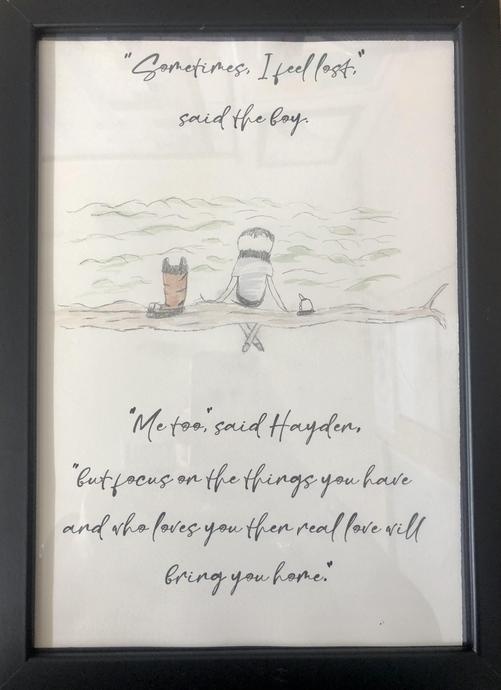 "Sometimes, I feel lost,"
said the boy.
"Me too," said Hayden,
"but focus on the things you have
and who loves you then real love will
bring you home."